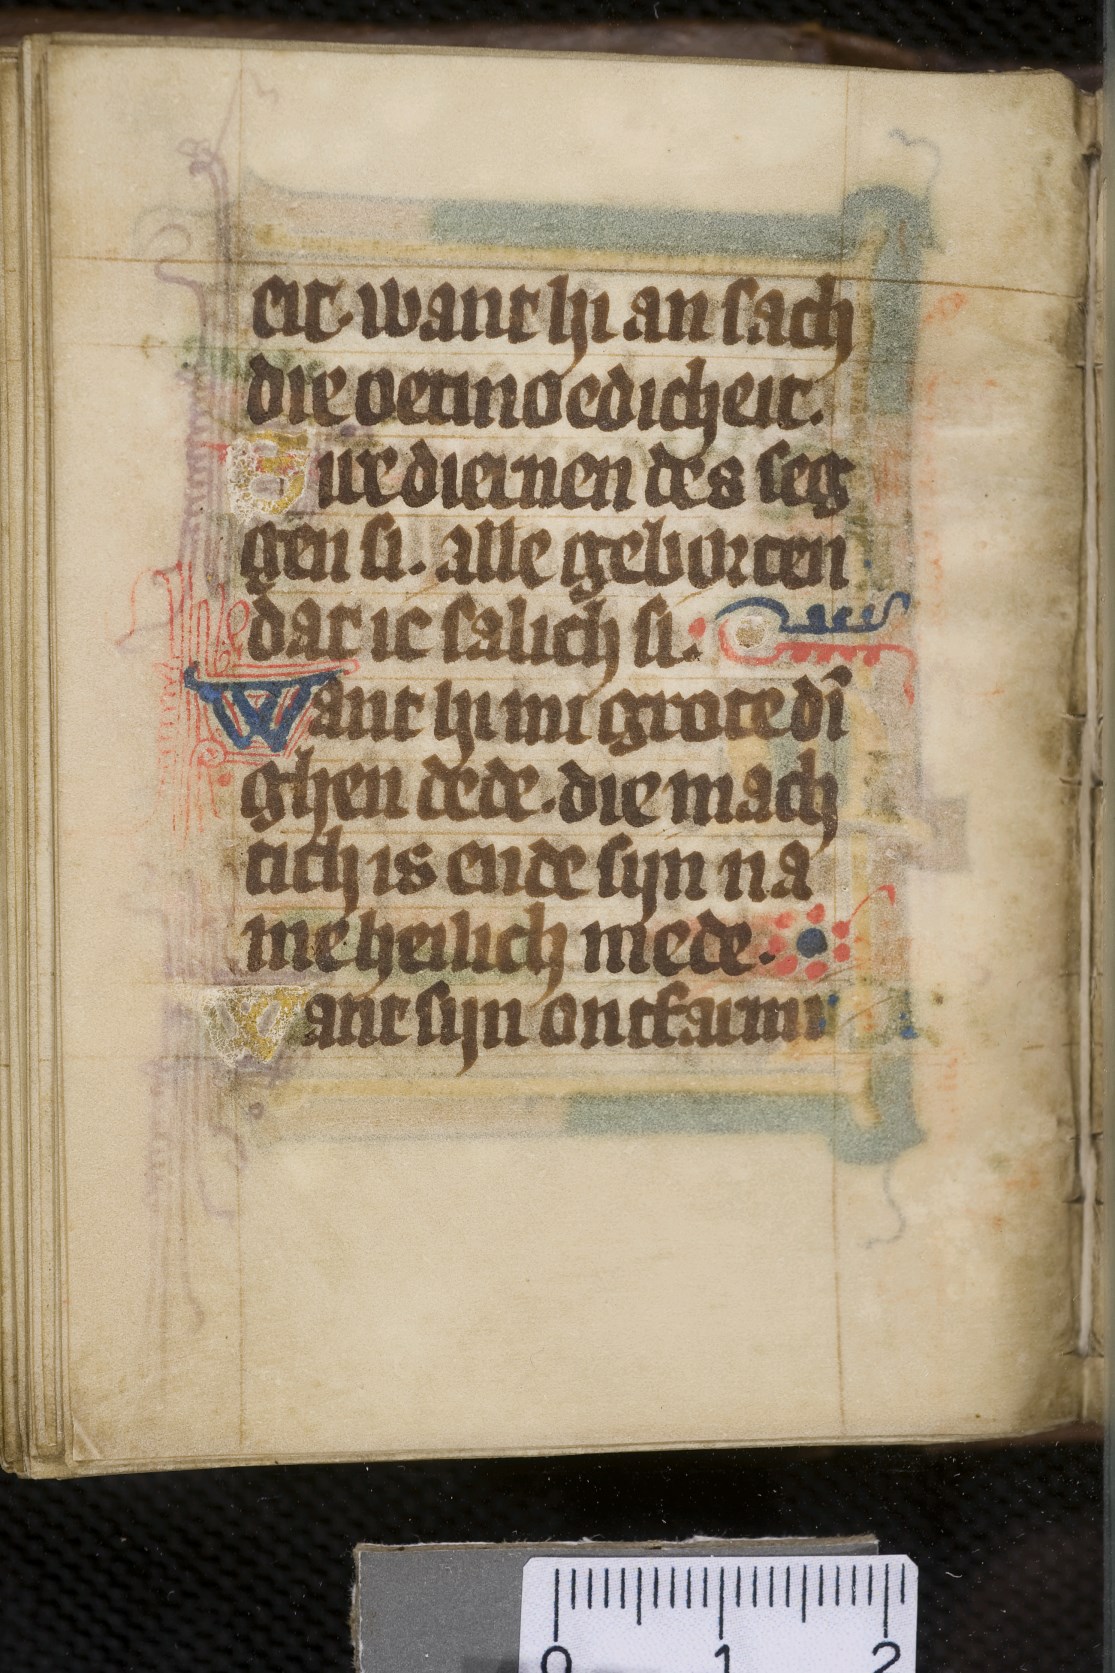 eit. want hi an sach
die oetmoedicheit.
Sire diernen des seg
gen si. alle geborten
dat ic salich si.
Want hi mi grote di
ghen dede. die mach
tich is ende sijn na
me heilich mede.
Want sijn ontfarmi
0 1 2